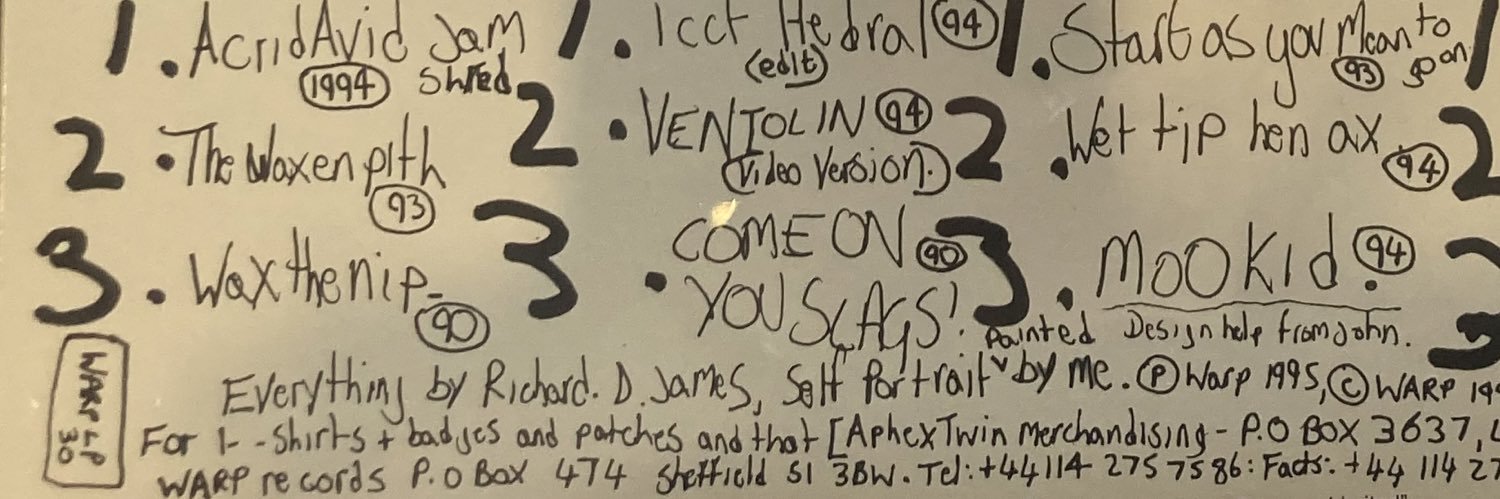 1 . AcridAvid Jam
(1994) Shred
2 . The Waxen pith
(93)
3 . Wax the nip
(90)
1 . Icct Hedral (94)
(edit)
2 . VENTOLIN (94)
(Video Version.)
3 . COME ON (90)
YOU SLAGS!
1 . Start as you Mean to
(93) go on
2 . Wet tip hen ax
(94)
3 . MOOKid. (94)
1
2
3
painted Design help from John.
Everything by Richard. D. James, Self Portrait ˅ by me. Ⓟ Warp 1995, © WARP
For T--Shirts + badges and patches and that [Aphex Twin Merchandising - P.O BOX 3637,
WARP records P.O Box 474 Sheffield S1 3BW. Tel: +44 114 275 7586: Facts: +44 114 27
WARP LP
30